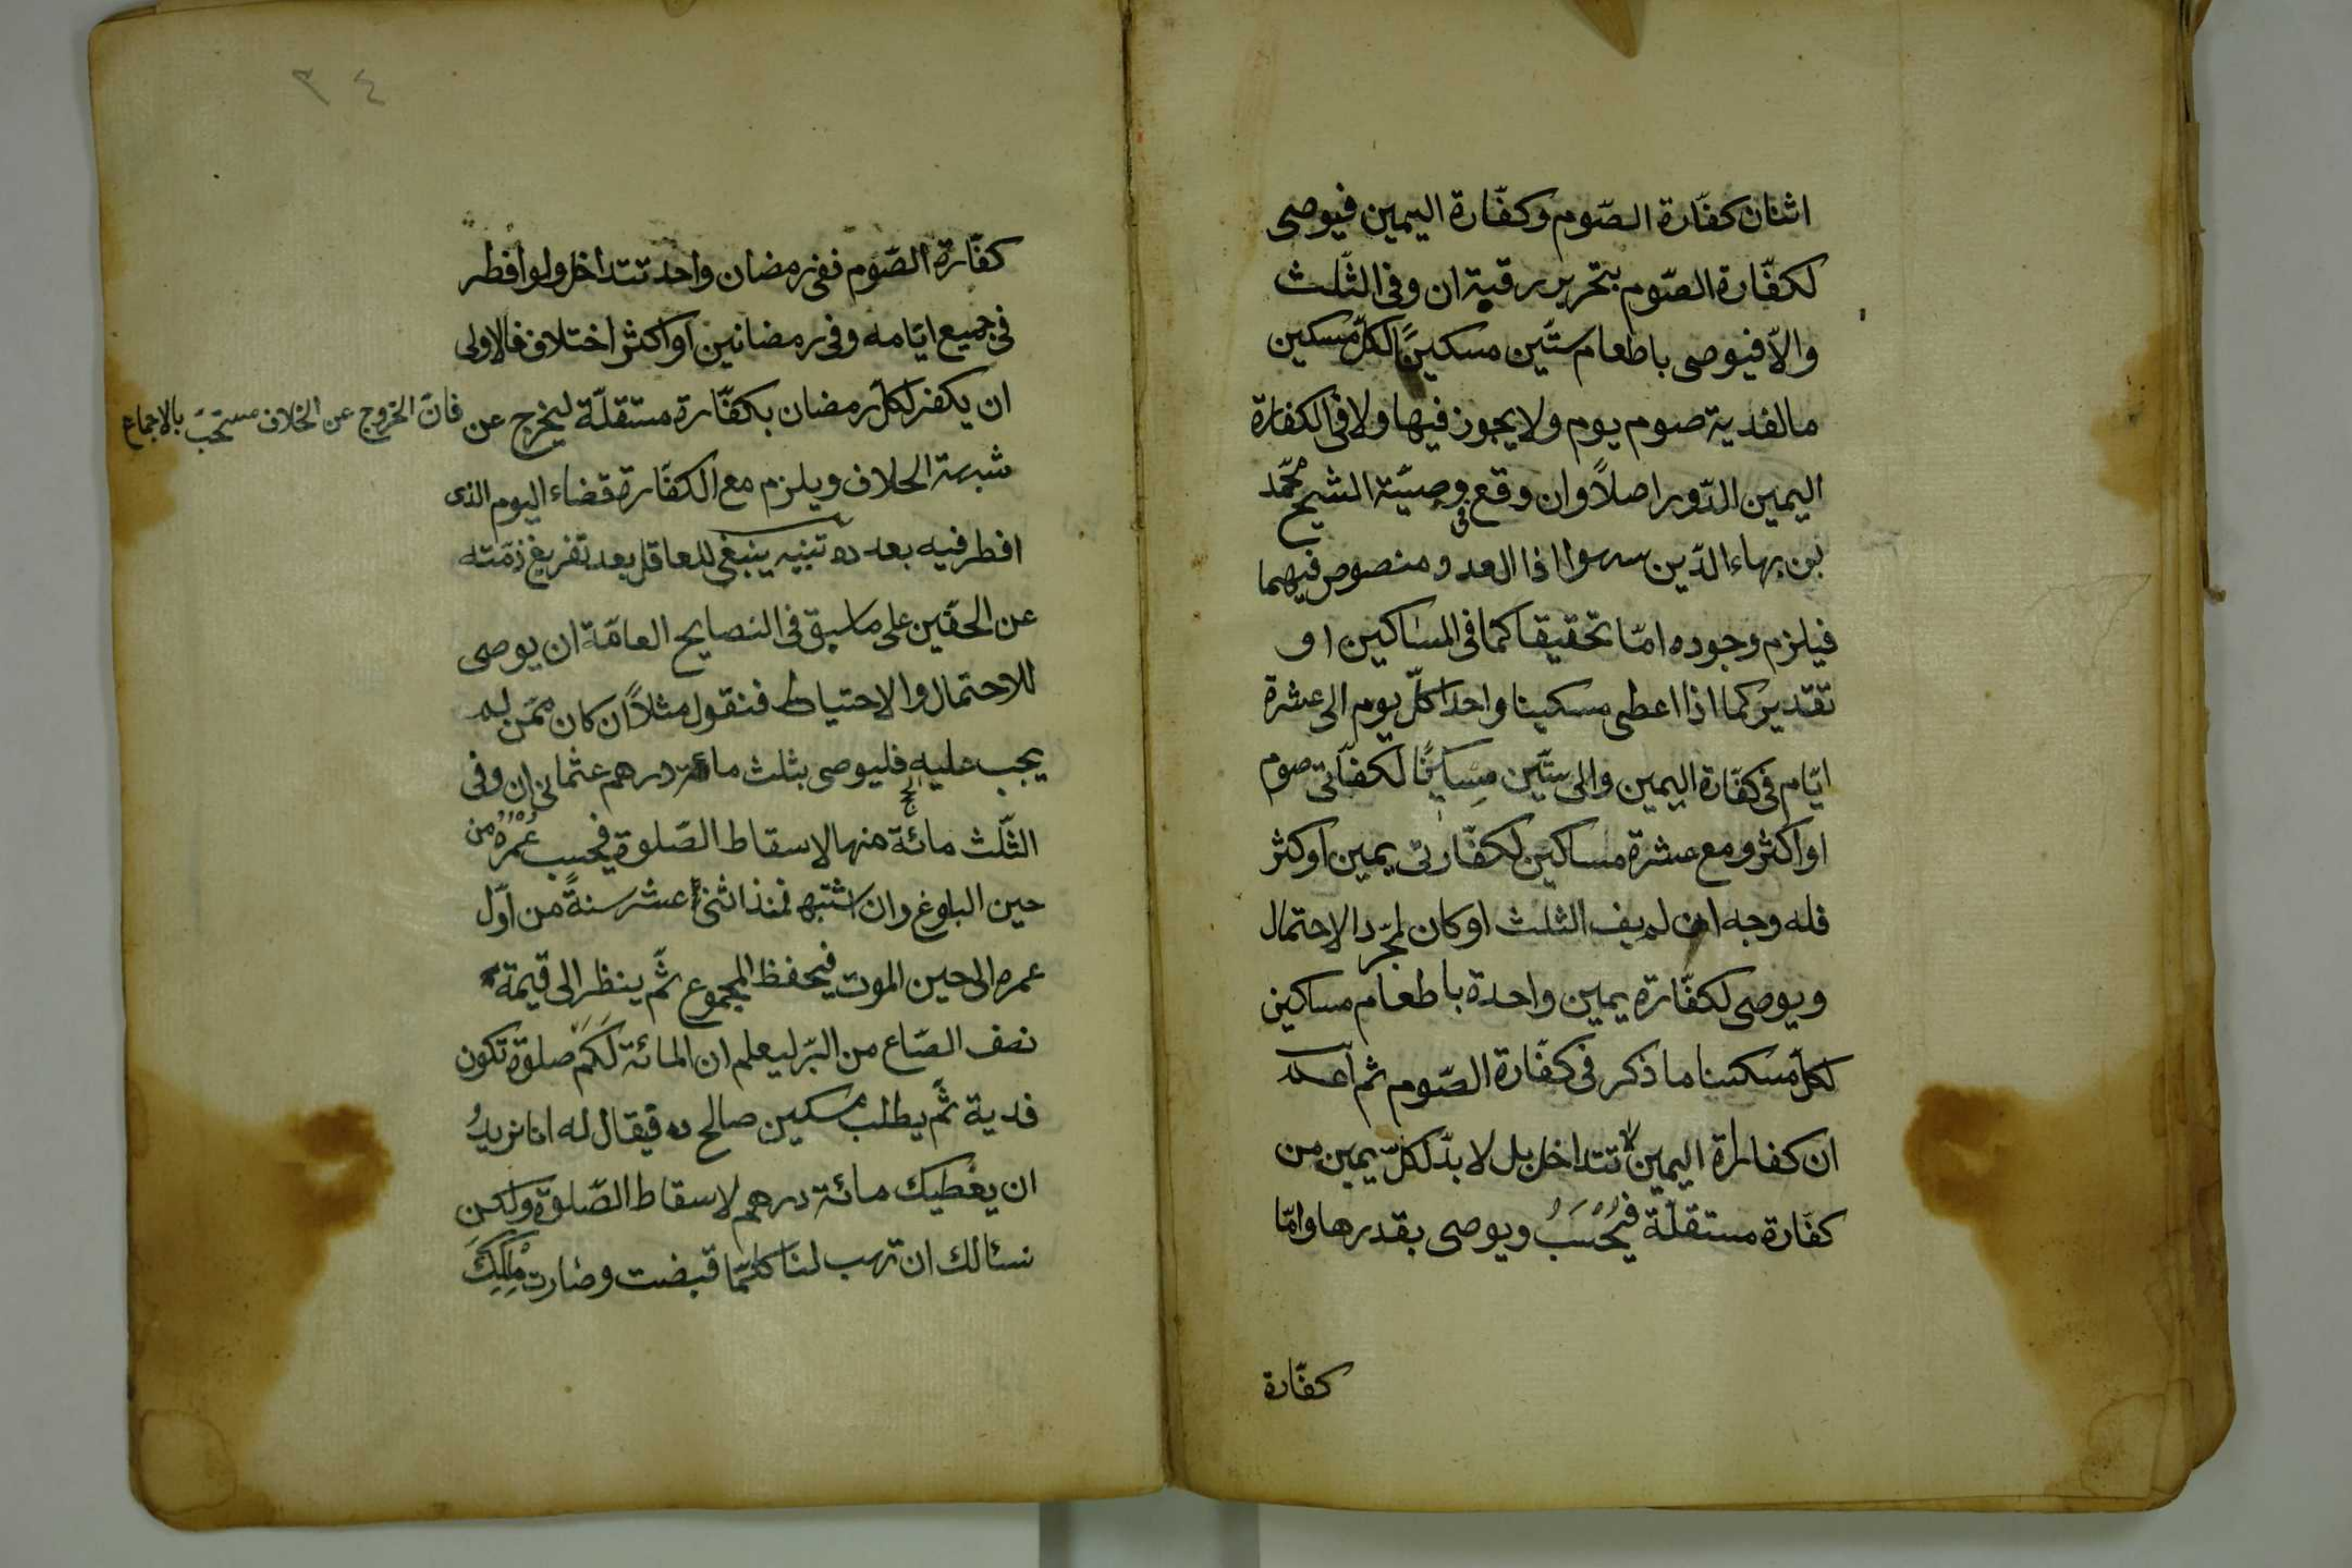 اثنان كفّارة الصّوم وكفّارة اليمين فيوصى
لكفّارة الصّوم بتحرير رقبة ان وفى الثّلث
والّا فيوصى باطعام ستّين مسكينًا لكلّ مسكين
مالفدية صوم يوم ولا يجوز فيها ولا فى الكفارة
اليمين الدّور اصلاً وان وقع فى وصيّة الشيخ محمّد
بن بهاء الدّين اذا العدد منصوص فيهما
فيلزم وجوده امّا تحقيقا كما فى المساكين او
تقدير كما اذا اعطى مسكينا واحدا كلّ يوم الى عشرة
ايّام فى كفّارة اليمين والى ستّين لكفّاتى صوم
او اكثر ومع عشرة مساكين لكفّارتى يمين او كثر
فله وجه ان لم يف الثلث او كان لمجرّد الاحتمال
ويوصى لكفّارة يمين واحدة باطعام مساكين
لكلّ مسكينا ما ذكر فى كفّارة الصّوم ثم اعلم
ان كفارة اليمين لا تتداخل بل لا بدّ لكلّ يمين من
كفّارة مستقلّة فيُحْسَبُ ويوصى بقدرها وامّا
كفّارة
٣٤
كفّارة الصّوم ففى رمضان واحد تتداخل ولو افطر
فى جميع ايّامه وفى رمضانين او اكثر اختلاف فالاولى
ان يكفر لكلّ رمضان بكفّارة مستقلّة ليخرج عن
فانّ الخروج عن الخلاف مستحبّ بالاجماع
شبهة الخلاف ويلزم مع الكفّارة قضاء اليوم الذى
افطر فيه بعده تنبيه ينبغى للعاقل بعد تفريغ ذمّته
عن الحقّين على ما سبق فى النصايح العامّة ان يوصى
للاحتمال والاحتياط فنقول مثلاً ان كان ممّن لم
يجب عليه الحج فليوصى بثلث مائة درهم عثمانى ان وفى
الثّلث مائة منها لاسقاط الصّلوة فيحسب عُمْرُهُ من
حين البلوغ وان اشتبه فمنذ اثنى عشر سنةً من اوّل
عمره الى حين الموت فيحفظ المجموع ثمّ ينظر الى قيمة
نصف الصّاع من البرّ ليعلم ان المائة لَكَمْ صلوة تكون
فدية ثمّ يطلب مسكين صالح ده فيقال له انا نريدُ
ان يعطيك مائة درهم لاسقاط الصّلوة ولكن
نسئالك ان تهب لنا كلّما قبضت وصارت مِلْكِكَ